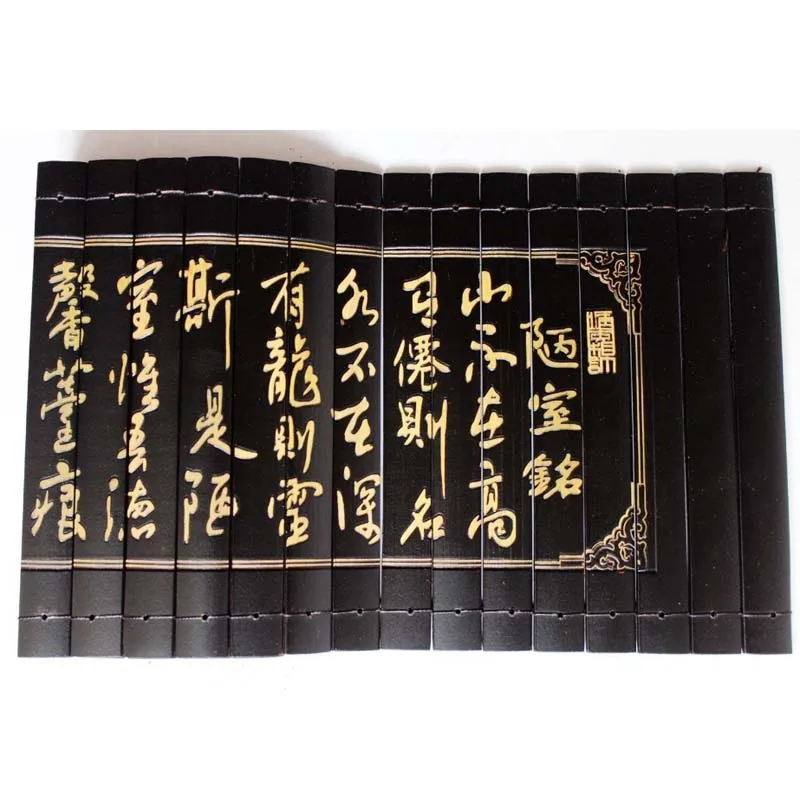 陋室銘
山不在高
有僊則名
水不在深
有龍則靈
斯是陋
室惟吾德
馨薹痕